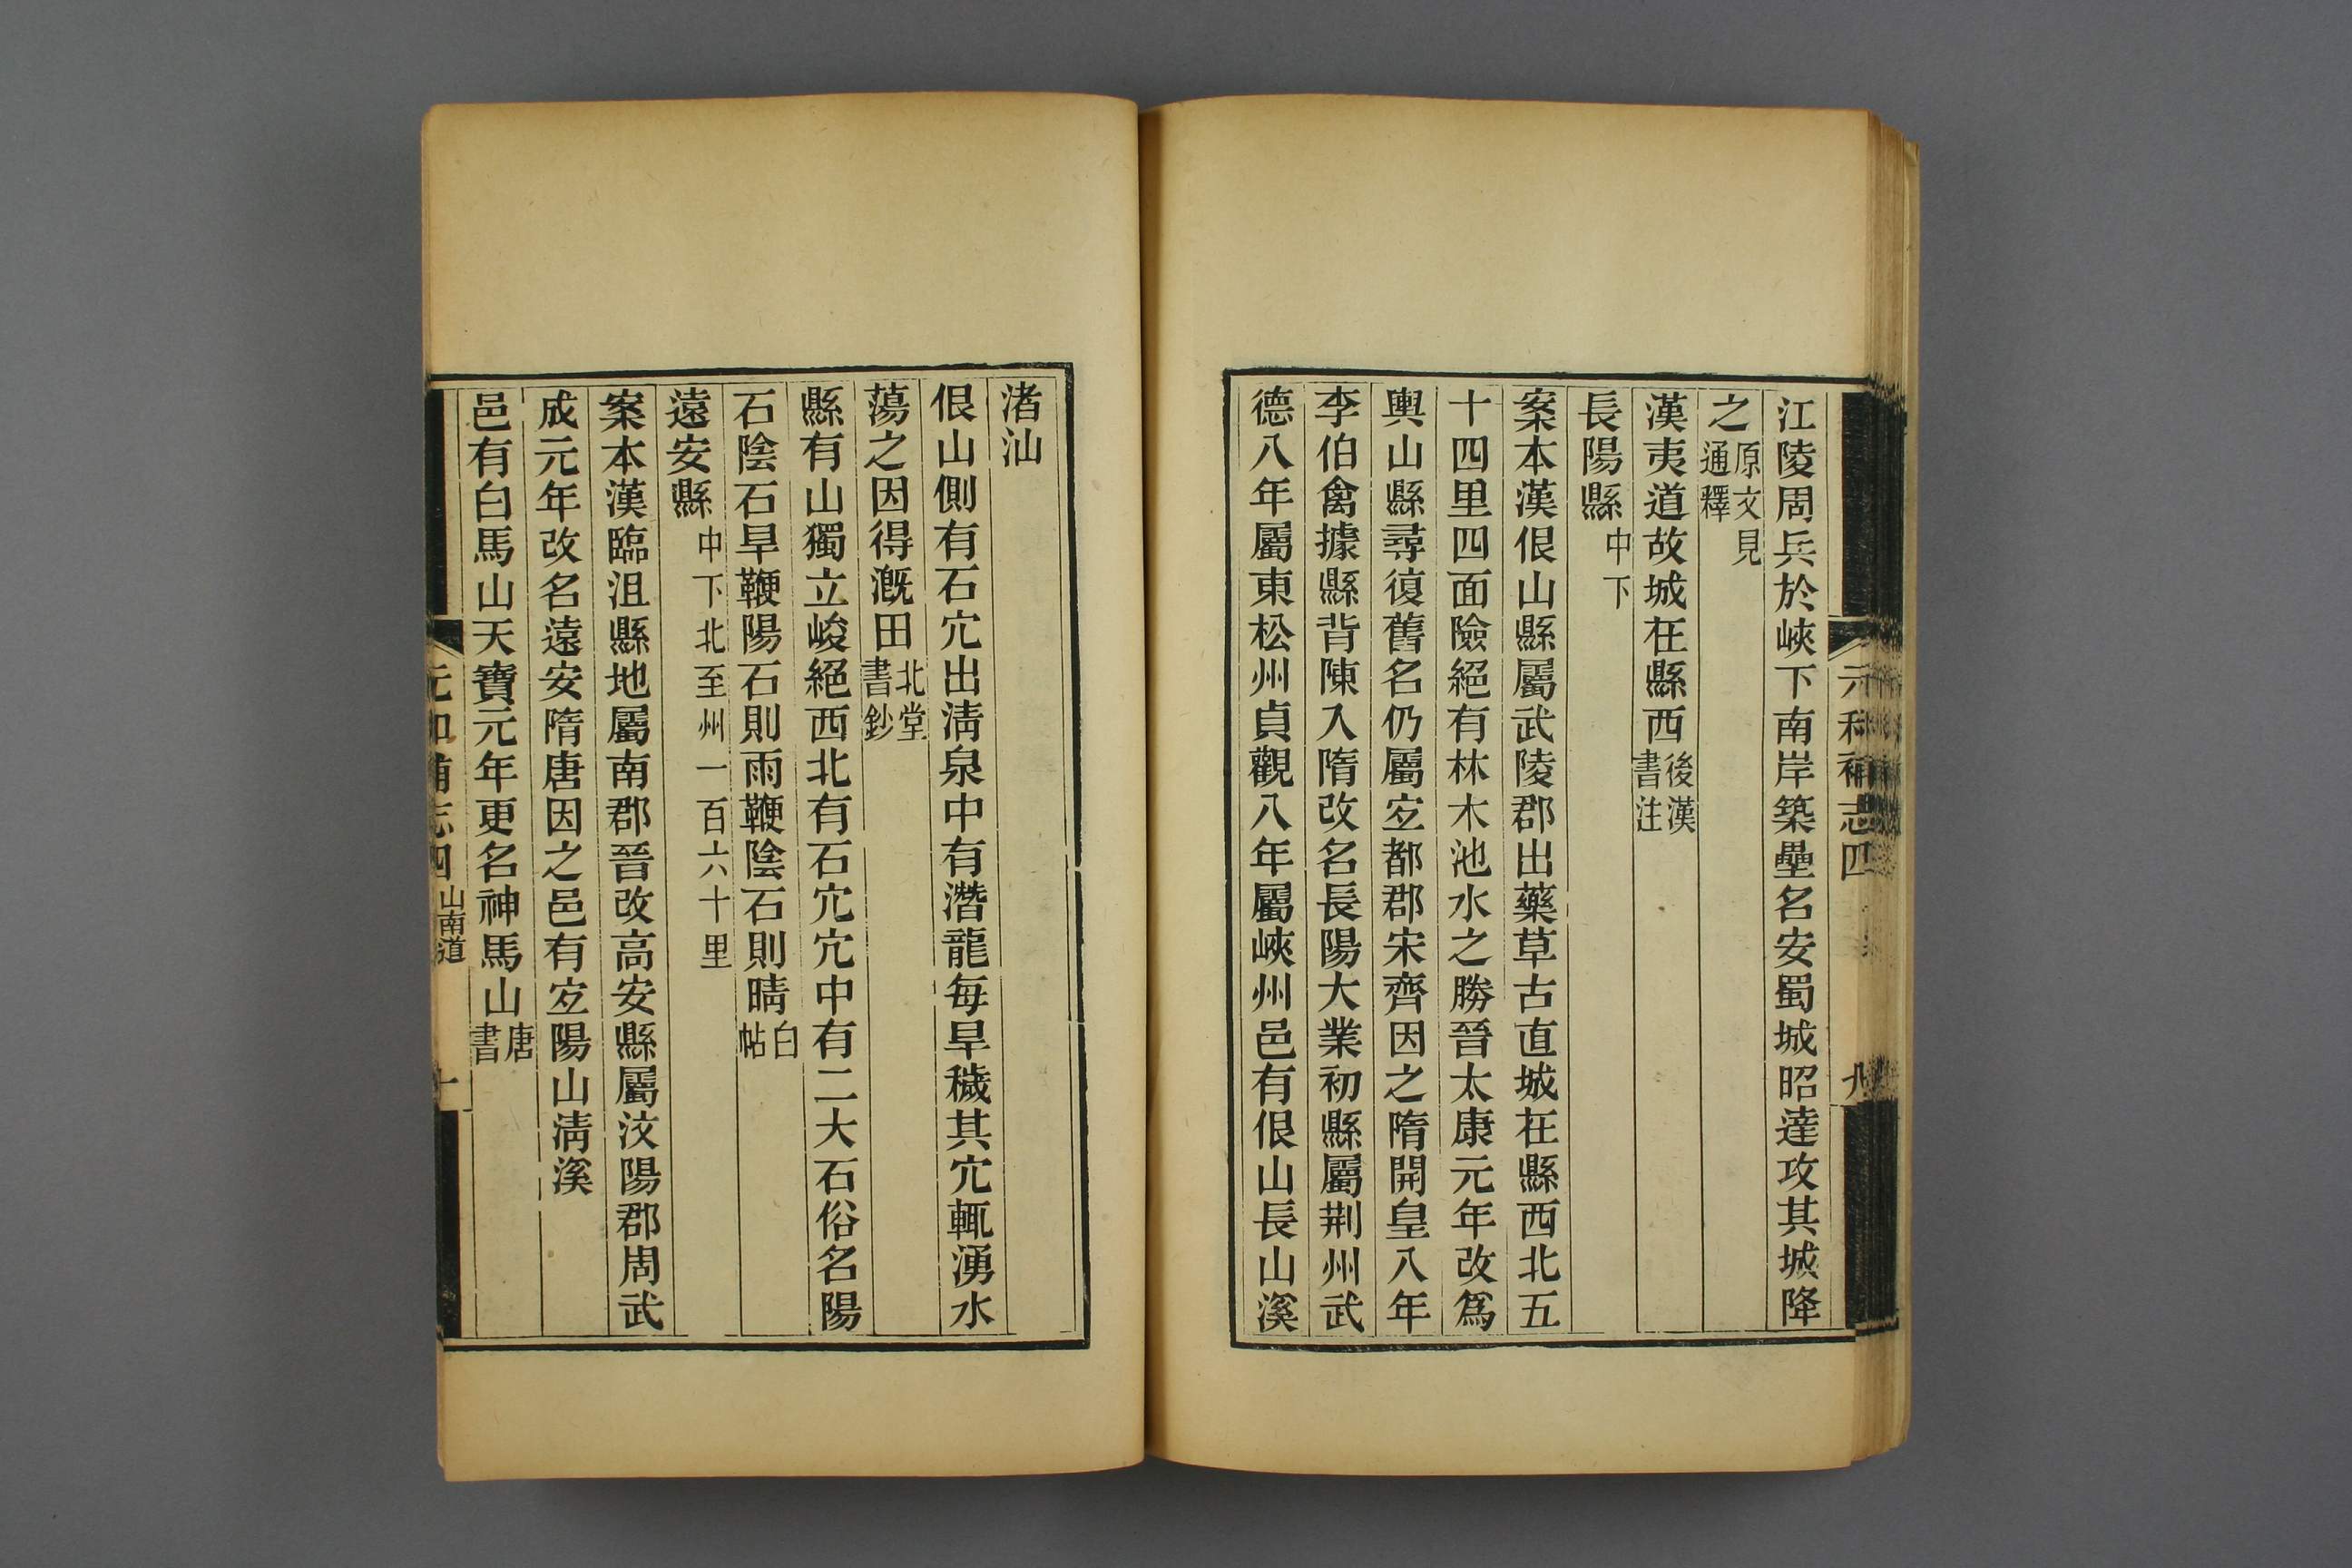 江陵周兵於峽下南岸築壘名安蜀城昭達攻其城降
之原文見通釋
漢夷道故城在縣西後漢書注
長陽縣中下
案本漢佷山縣屬武陵郡出藥草古直城在縣西北五
十四里四面險絕有林木池水之勝晉太康元年改爲
輿山縣尋復舊名仍屬宐都郡宋齊因之隋開皇八年
李伯禽據縣背陳入隋改名長陽大業初縣屬荆州武
德八年屬東松州貞觀八年屬峽州邑有佷山長山溪
渚汕
佷山側有石穴出淸泉中有潛龍每旱穢其穴輒湧水
蕩之因得漑田北堂書鈔
縣有山獨立峻絕西北有石穴穴中有二大石俗名陽
石陰石旱鞭陽石則雨鞭陰石則晴白帖
遠安縣中下北至州一百六十里
案本漢臨沮縣地屬南郡晉改高安縣屬汶陽郡周武
成元年改名遠安隋唐因之邑有宐陽山淸溪
邑有白馬山天寶元年更名神馬山唐書
元和補志四 山南道